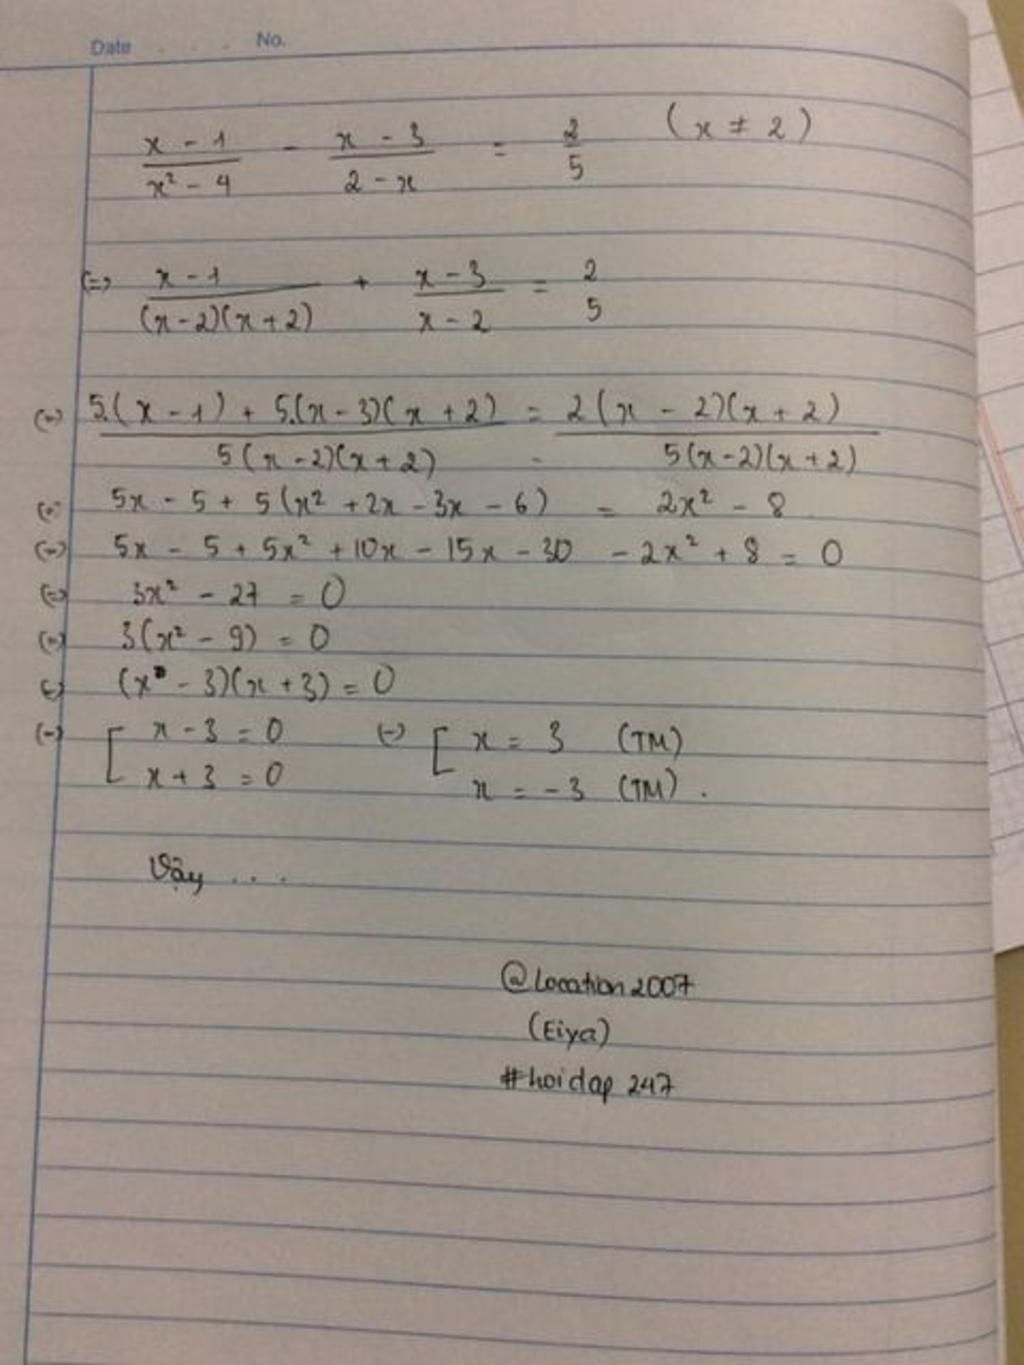 Date . . . . No.
x - 1 / x² - 4 - x - 3 / 2 - x = 2 / 5 (x ≠ 2)
(=) x - 1 / (x - 2)(x + 2) + x - 3 / x - 2 = 2 / 5
(=) 5.(x - 1) + 5.(x - 3)(x + 2) / 5(x - 2)(x + 2) = 2(x - 2)(x + 2) / 5(x - 2)(x + 2)
(=) 5x - 5 + 5(x² + 2x - 3x - 6) = 2x² - 8
(=) 5x - 5 + 5x² + 10x - 15x - 30 - 2x² + 8 = 0
(=) 3x² - 27 = 0
(=) 3(x² - 9) = 0
(=) (x - 3)(x + 3) = 0
(=) [ x - 3 = 0 (=) [ x = 3 (TM)
x + 3 = 0 x = -3 (TM).
Vậy ...
@Location2007
(Eiya)
#hoidap247